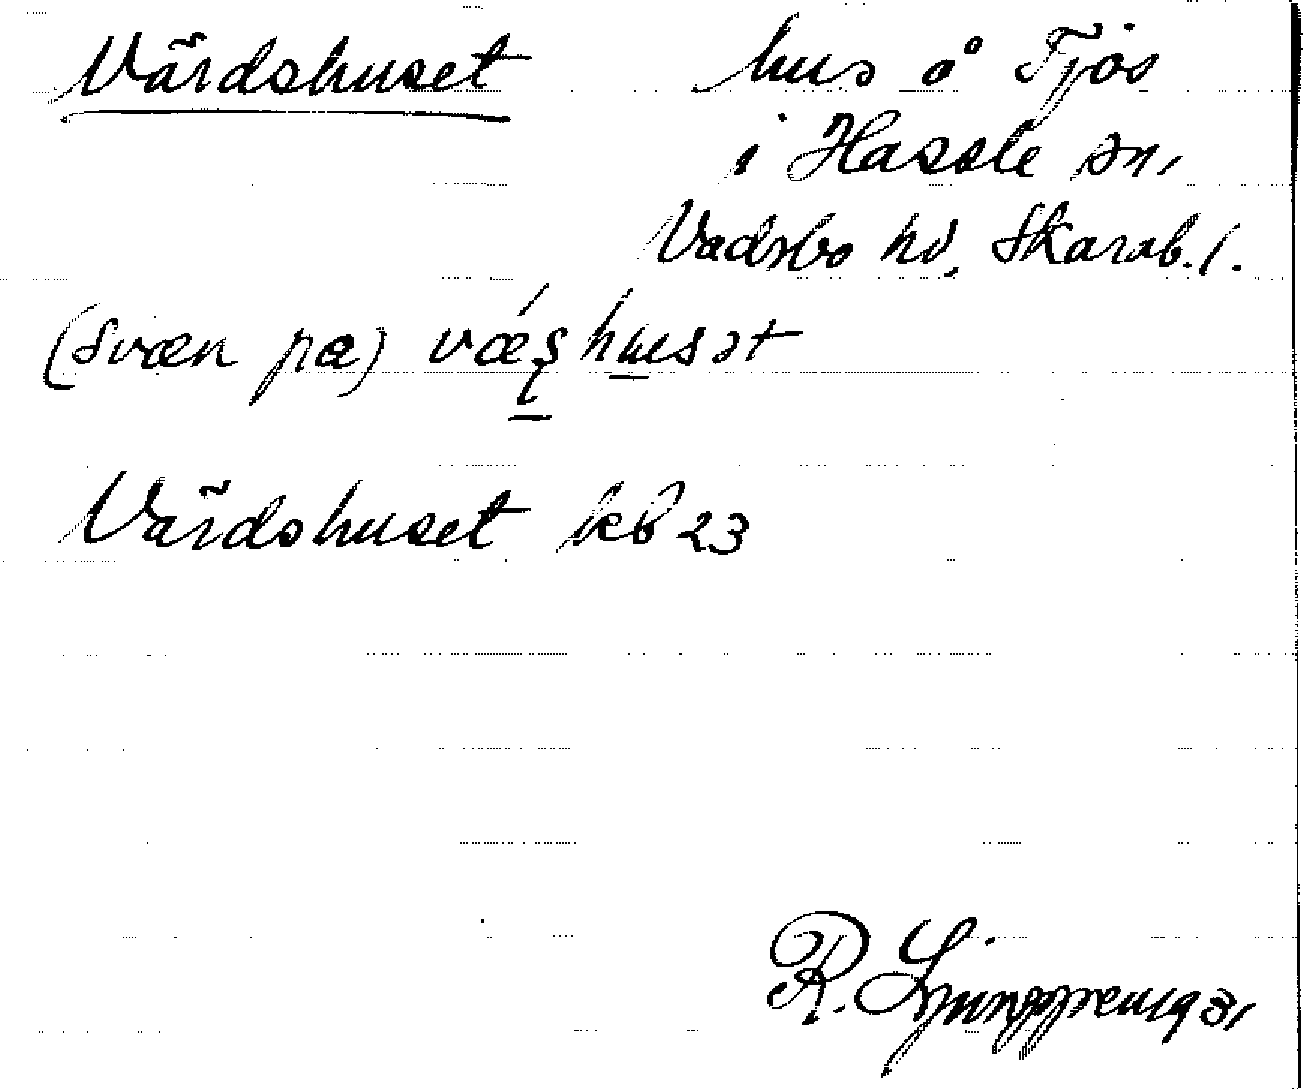 Värdshuset hus å Fjös
i Hassle sn,
Vadsbo hd, Skarab. l.
(svæn pa)
Värdshuset kb 23
R. Ljunggren 1931